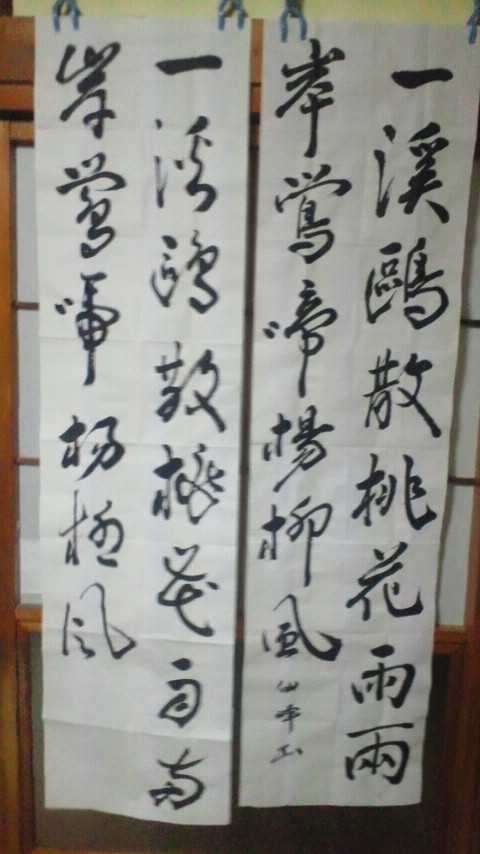 一溪鷗散桃花雨兩
岸鶯啼楊柳風 仙峰
一溪鷗散桃花雨兩
岸鶯啼楊柳風